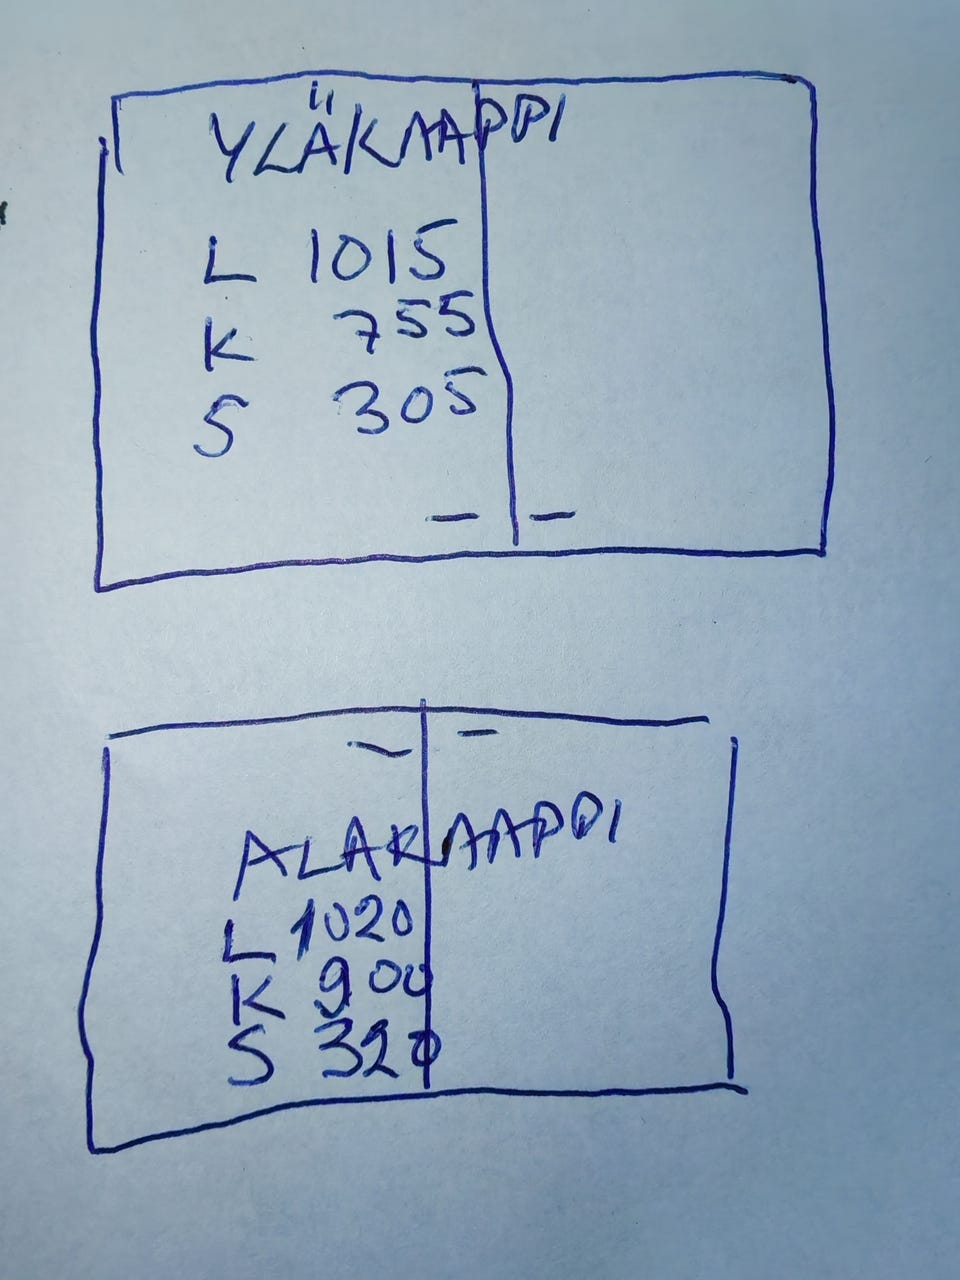 YLÄKAAPPI
L 1015
K 755
S 305
ALAKAAPPI
L 1020
K 900
S 320